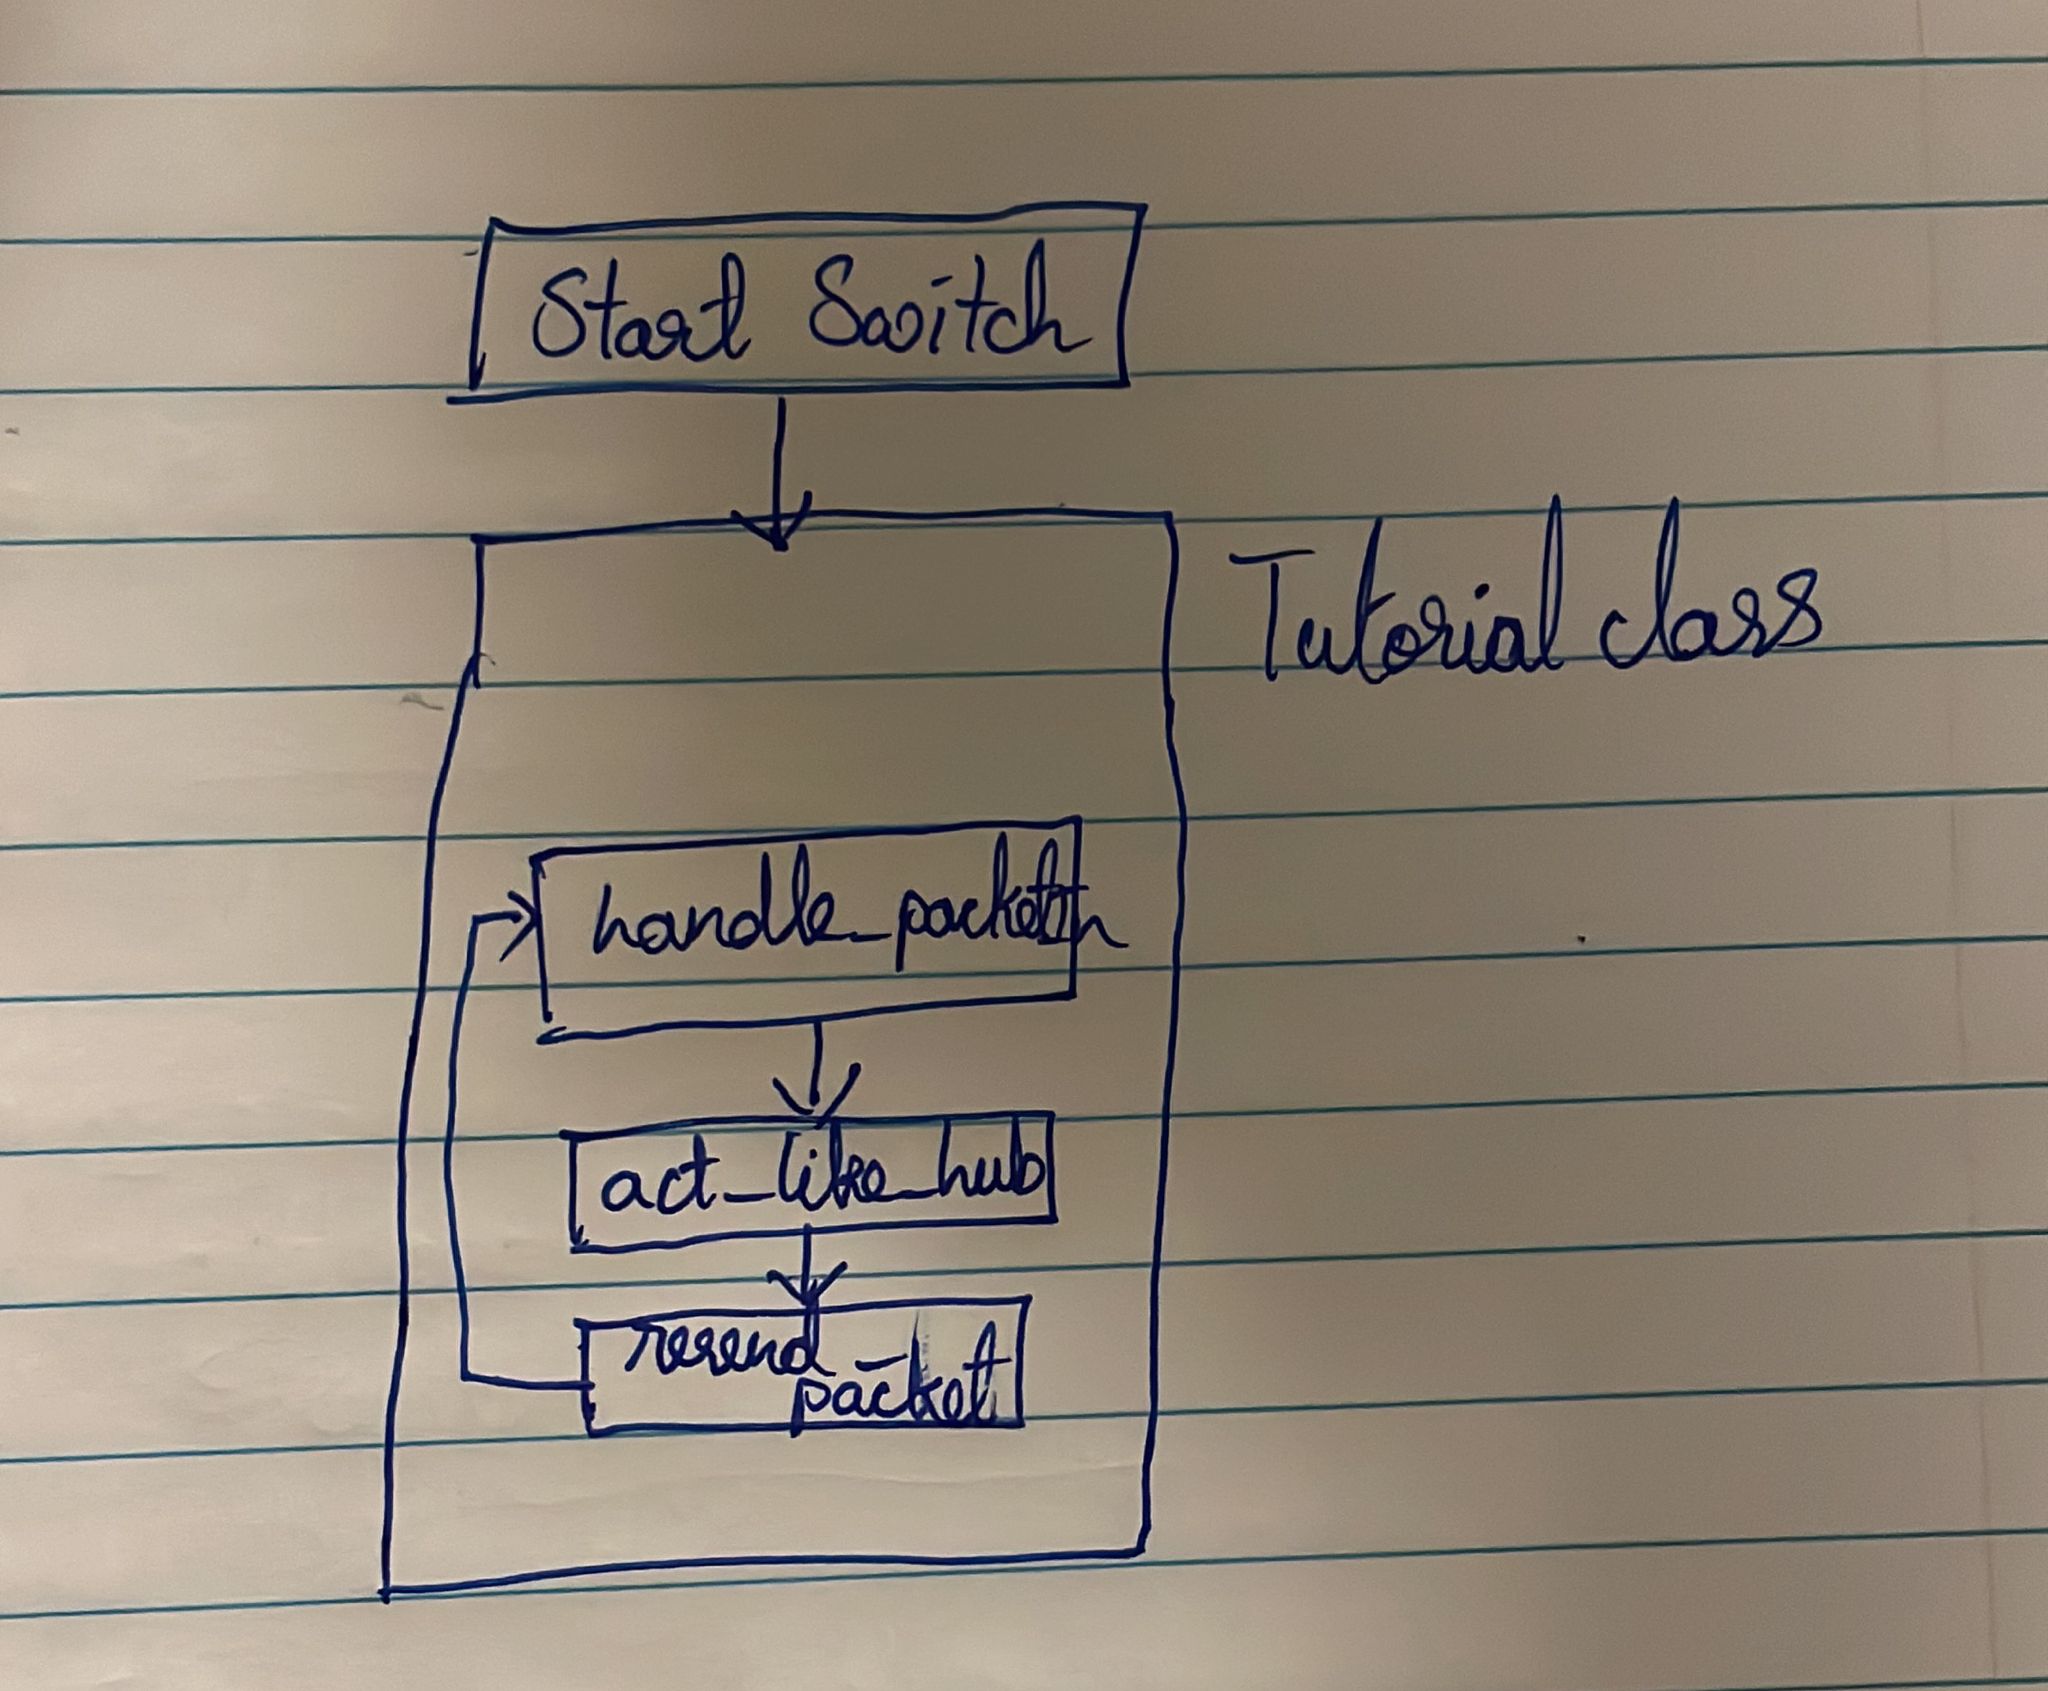 Start Switch
Tutorial class
handle_packetIn
act_like_hub
resend_
packet